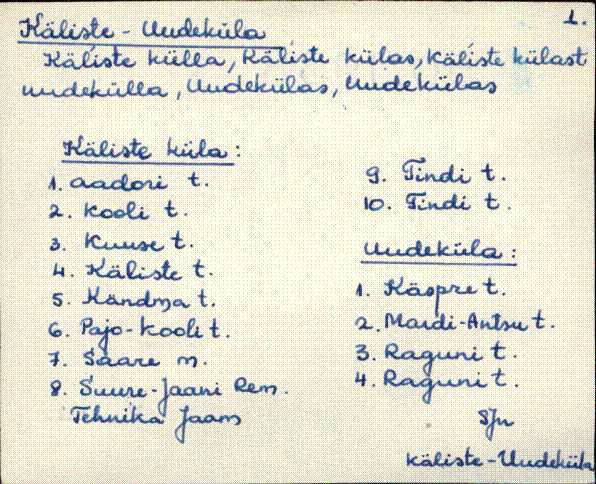 Käliste - Uudeküla
1.
Käliste külla, Käliste külas, Käliste külast
Uudekülla, Uudekülas, Uudekülas
Käliste küla:
1. Aadori t.
2. Kooli t.
3. Kuuse t.
4. Käliste t.
5. Kändma t.
6. Pajo-Kooli t.
7. Saare n.
8. Suure-Jaani Rem.
Tehnika Jaam
9. Tindi t.
10. Tindi t.
Uudeküla:
1. Käspre t.
2. Mardi-Antsu t.
3. Raguni t.
4. Raguni t.
SJn
Käliste-Uudeküla